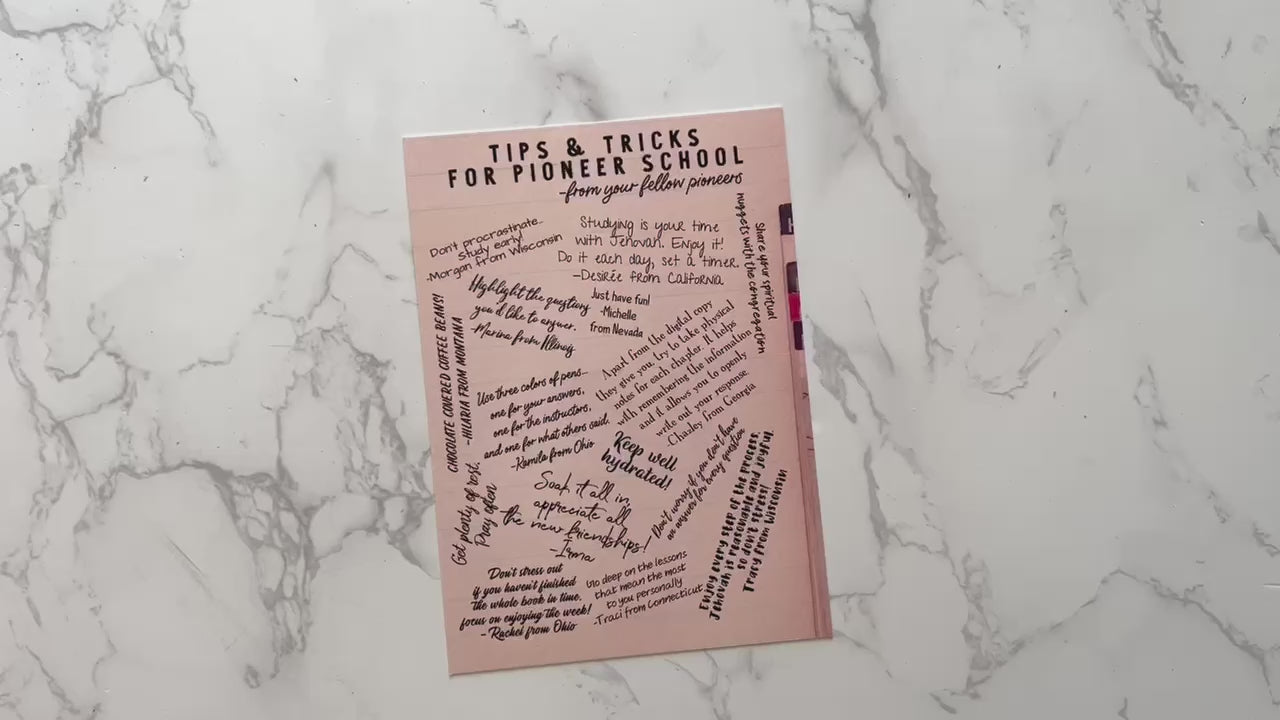 TIPS & TRICKS
FOR PIONEER SCHOOL
-from your fellow pioneers
Don't procrastinate...
Study early!
-Morgan from Wisconsin
Studying is your time
with Jehovah. Enjoy it!
Do it each day, set a timer.
-Desirée from California
Share your spiritual
nuggets with the congregation
Highlight the questions
you'd like to answer.
-Marina from Illinois
Just have fun!
-Michelle
from Nevada
CHOCOLATE COVERED COFFEE BEANS!
-HILARIA FROM MONTANA
Apart from the digital copy
they give you, try to take physical
notes for each chapter. It helps
with remembering the information
and it allows you to openly
write out your response
-Chazley from Georgia
Use three colors of pens—
one for your answers,
one for the instructors,
and one for what others said.
-Kamila from Ohio
Keep well
hydrated!
Get plenty of rest,
Pray often
Soak it all in,
appreciate all
the new friendships!
-Irma
Don't worry if you don't have
an answer for every question
Enjoy every step of the process.
Jehovah is reasonable and joyful
so don't stress!
Tracy from Wisconsin
Don't stress out
if you haven't finished
the whole book in time.
focus on enjoying the week!
- Rachel from Ohio
Go deep on the lessons
that mean the most
to you personally
-Traci from Connecticut